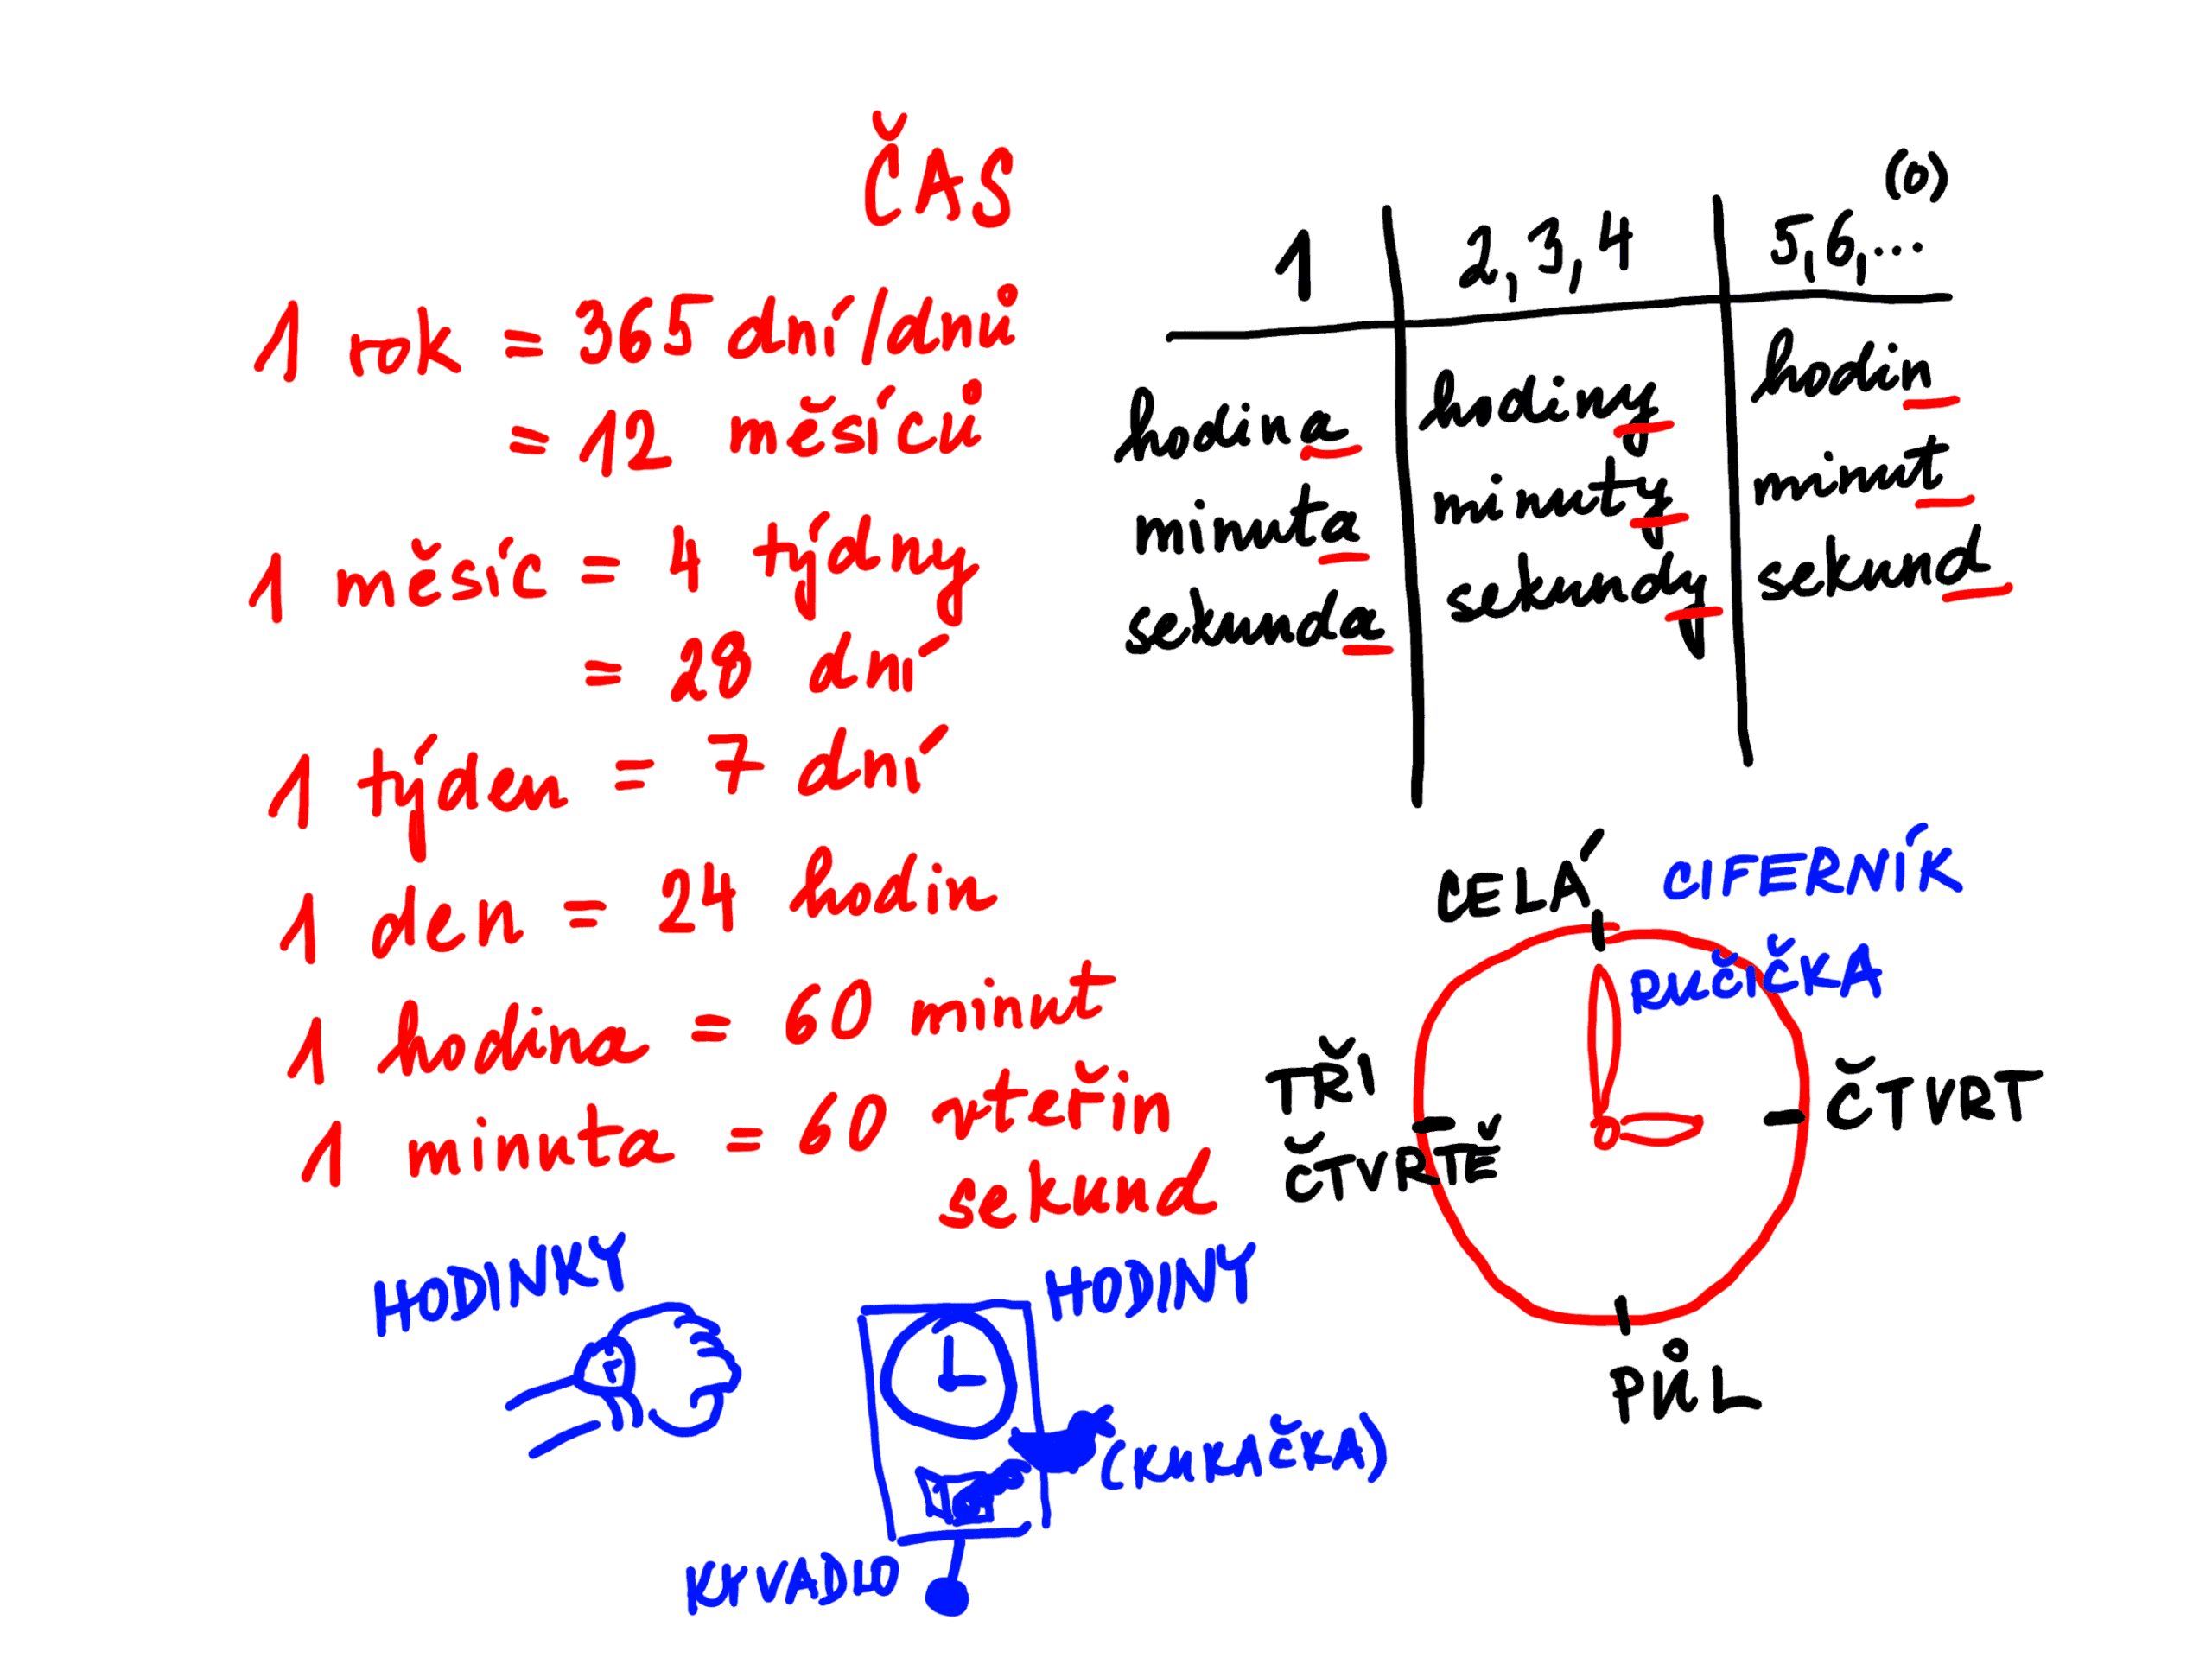 ČAS
1 rok = 365 dní/dnů
= 12 měsíců
1 měsíc = 4 týdny
= 28 dní
1 týden = 7 dní
1 den = 24 hodin
1 hodina = 60 minut
1 minuta = 60 vteřin
sekund
(0)
1 2, 3, 4 5, 6, ...
hodina hodiny hodin
minuta minuty minut
sekunda sekundy sekund
CELÁ CIFERNÍK
RUČIČKA
TŘI
ČTVRTĚ
ČTVRT
PŮL
HODINKY
HODINY
(KUKAČKA)
KYVADLO